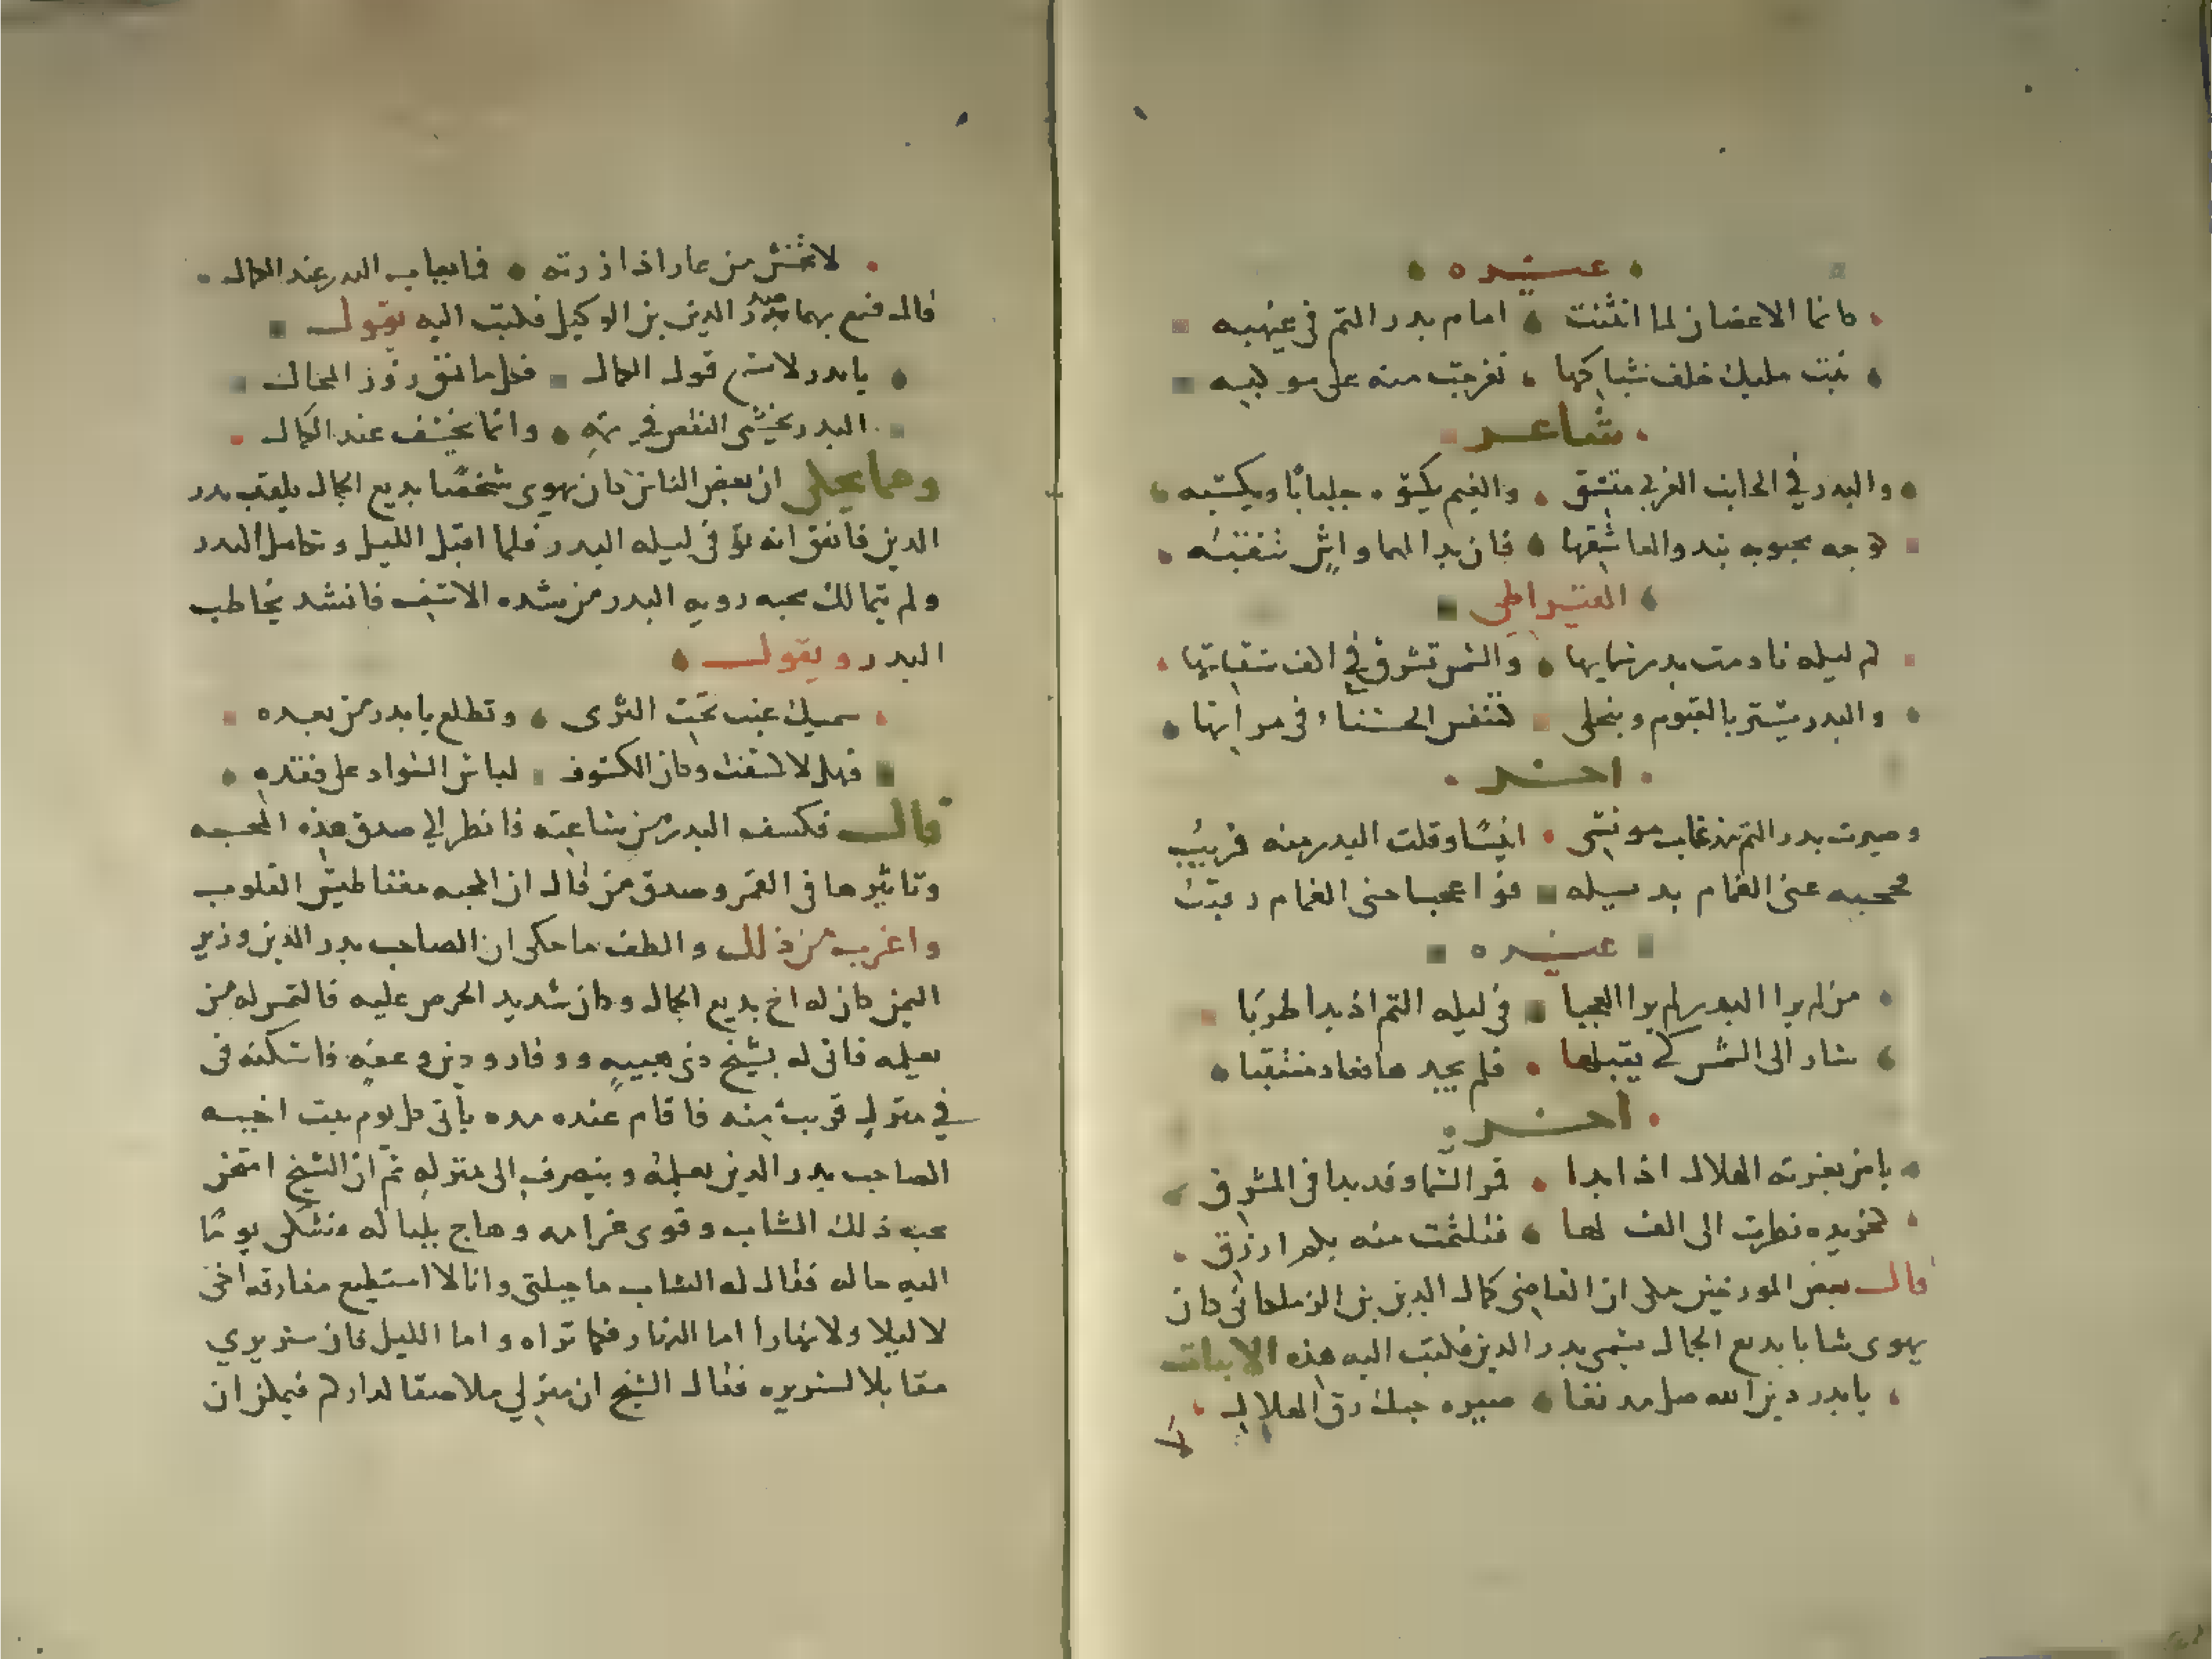 غيره
كانما الاغصان لما انثنت امام بدر التم في غيهبه
بنت مليك خلف شباكها تفرجت منه على موكبه
شاعر
والبدر في الجانب الغربي متسق والغيم يكسوه جلبابا ويكسبه
كوجه محبوبه تبدو لعاشقها فان بدا لهما واش تنقبه
القيراطي
كم ليله نادمت بدر سمايها والشمس تشرق في اكف سقاتها
والبدر يستر بالغيوم وينجلي كتنفس الحسناء في مرآتها
اخر
وصيرت بدر التم مذ غاب مونسي انيسا وقلت البدر منه قريب
فحجبه عني الغمام بذيله فوا عجبا حتى الغمام رقيب
غيره
من لم يرا البدر لم يرا العجبا في ليله التم اذ بدا طربا
سار الى الشمس كي يقبلها فلم يجدها فعاد منتقبا
اخر
يا من بغرته الهلال اذا بدا قمر السما وقد بدا في المشرق
كخريده نظرت الى الف لها فتلثمت منه بكم ازرق
قال بعض المورخين حكى ان القاضي كمال الدين بن الزملكاني كان
يهوى شابا بديع الجمال يسمى بدر الدين فكتب اليه هذه الابيات
يا بدر دين الله صل مدنفا صيره حبك رق الهلال
لا
لا تخش من عار اذا زرته فما يعاب البدر عند الكمال
قال فسمع بهما صدر الدين بن الوكيل فكتب اليه يقول
يا بدر لا تسمع قول الكمال فكل ما نمق زور المحال
البدر يخشى النقص في تمه وانما يخسف عند الكمال
ومما يحكى ان بعض الناس كان يهوى شخصا بديع الجمال يلقب بدر
الدين فاتفق انه توفى ليله البدر فلما اقبل الليل وتكامل البدر
ولم يتمالك محبه رويه البدر من شده الاسف فانشد يخاطب
البدر ويقول
سميك غيب تحت الثرى وتطلع يا بدر من بعده
فهلا لا كسفت وكان الكسوف لباس السواد على فقده
قال فكسف البدر من ساعته فانظر الى صدق هذه المحبه
وتاثيرها في القمر وصدق من قال ان المحبه مغناطيس القلوب
واغرب من ذلك والطف ما حكى ان الصاحب بدر الدين وزير
اليمن كان له اخ بديع الجمال وكان شديد الحرص عليه فالتمس له من
يعلمه فاتى له بشيخ ذي هيبه ووقار ودين وعفه فاسكنه في
في منزل قريب منه فاقام عنده مده ياتي كل يوم بيت اخيه
الصاحب بدر الدين يعلمه وينصرف الى منزله ثم ان الشيخ امتحن
بحب ذلك الشاب وقوى غرامه وهاج بلباله فشكى يوما
اليه حاله فقال له الشاب ما حيلتي وانا لا استطيع مفارقه اخي
لا ليلا ولا نهارا اما النهار فكما تراه واما الليل فان سريري
مقابلا لسريره فقال الشيخ ان منزلي ملاصقا لداركم فيمكن ان